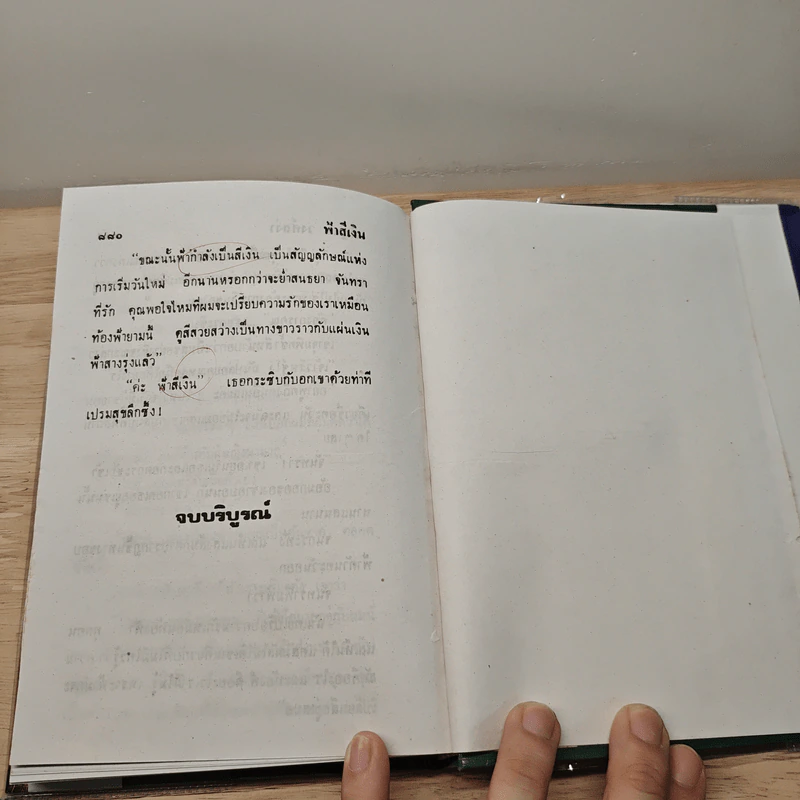 ๘๘๐
ฟ้าสีเงิน
“ขณะนั้นฟ้ากำลังเป็นสีเงิน เป็นสัญญลักษณ์แห่ง
การเริ่มวันใหม่ อีกนานหรอกกว่าจะย่ำสนธยา จันทรา
ที่รัก คุณพอใจไหมที่ผมจะเปรียบความรักของเราเหมือน
ท้องฟ้ายามนี้ ดูสีสวยสว่างเป็นทางขาวราวกับแผ่นเงิน
ฟ้าสางรุ่งแล้ว”
“ค่ะ ฟ้าสีเงิน” เธอกระซิบกับอกเขาด้วยท่าที
เปรมสุขลึกซึ้ง !
จบบริบูรณ์